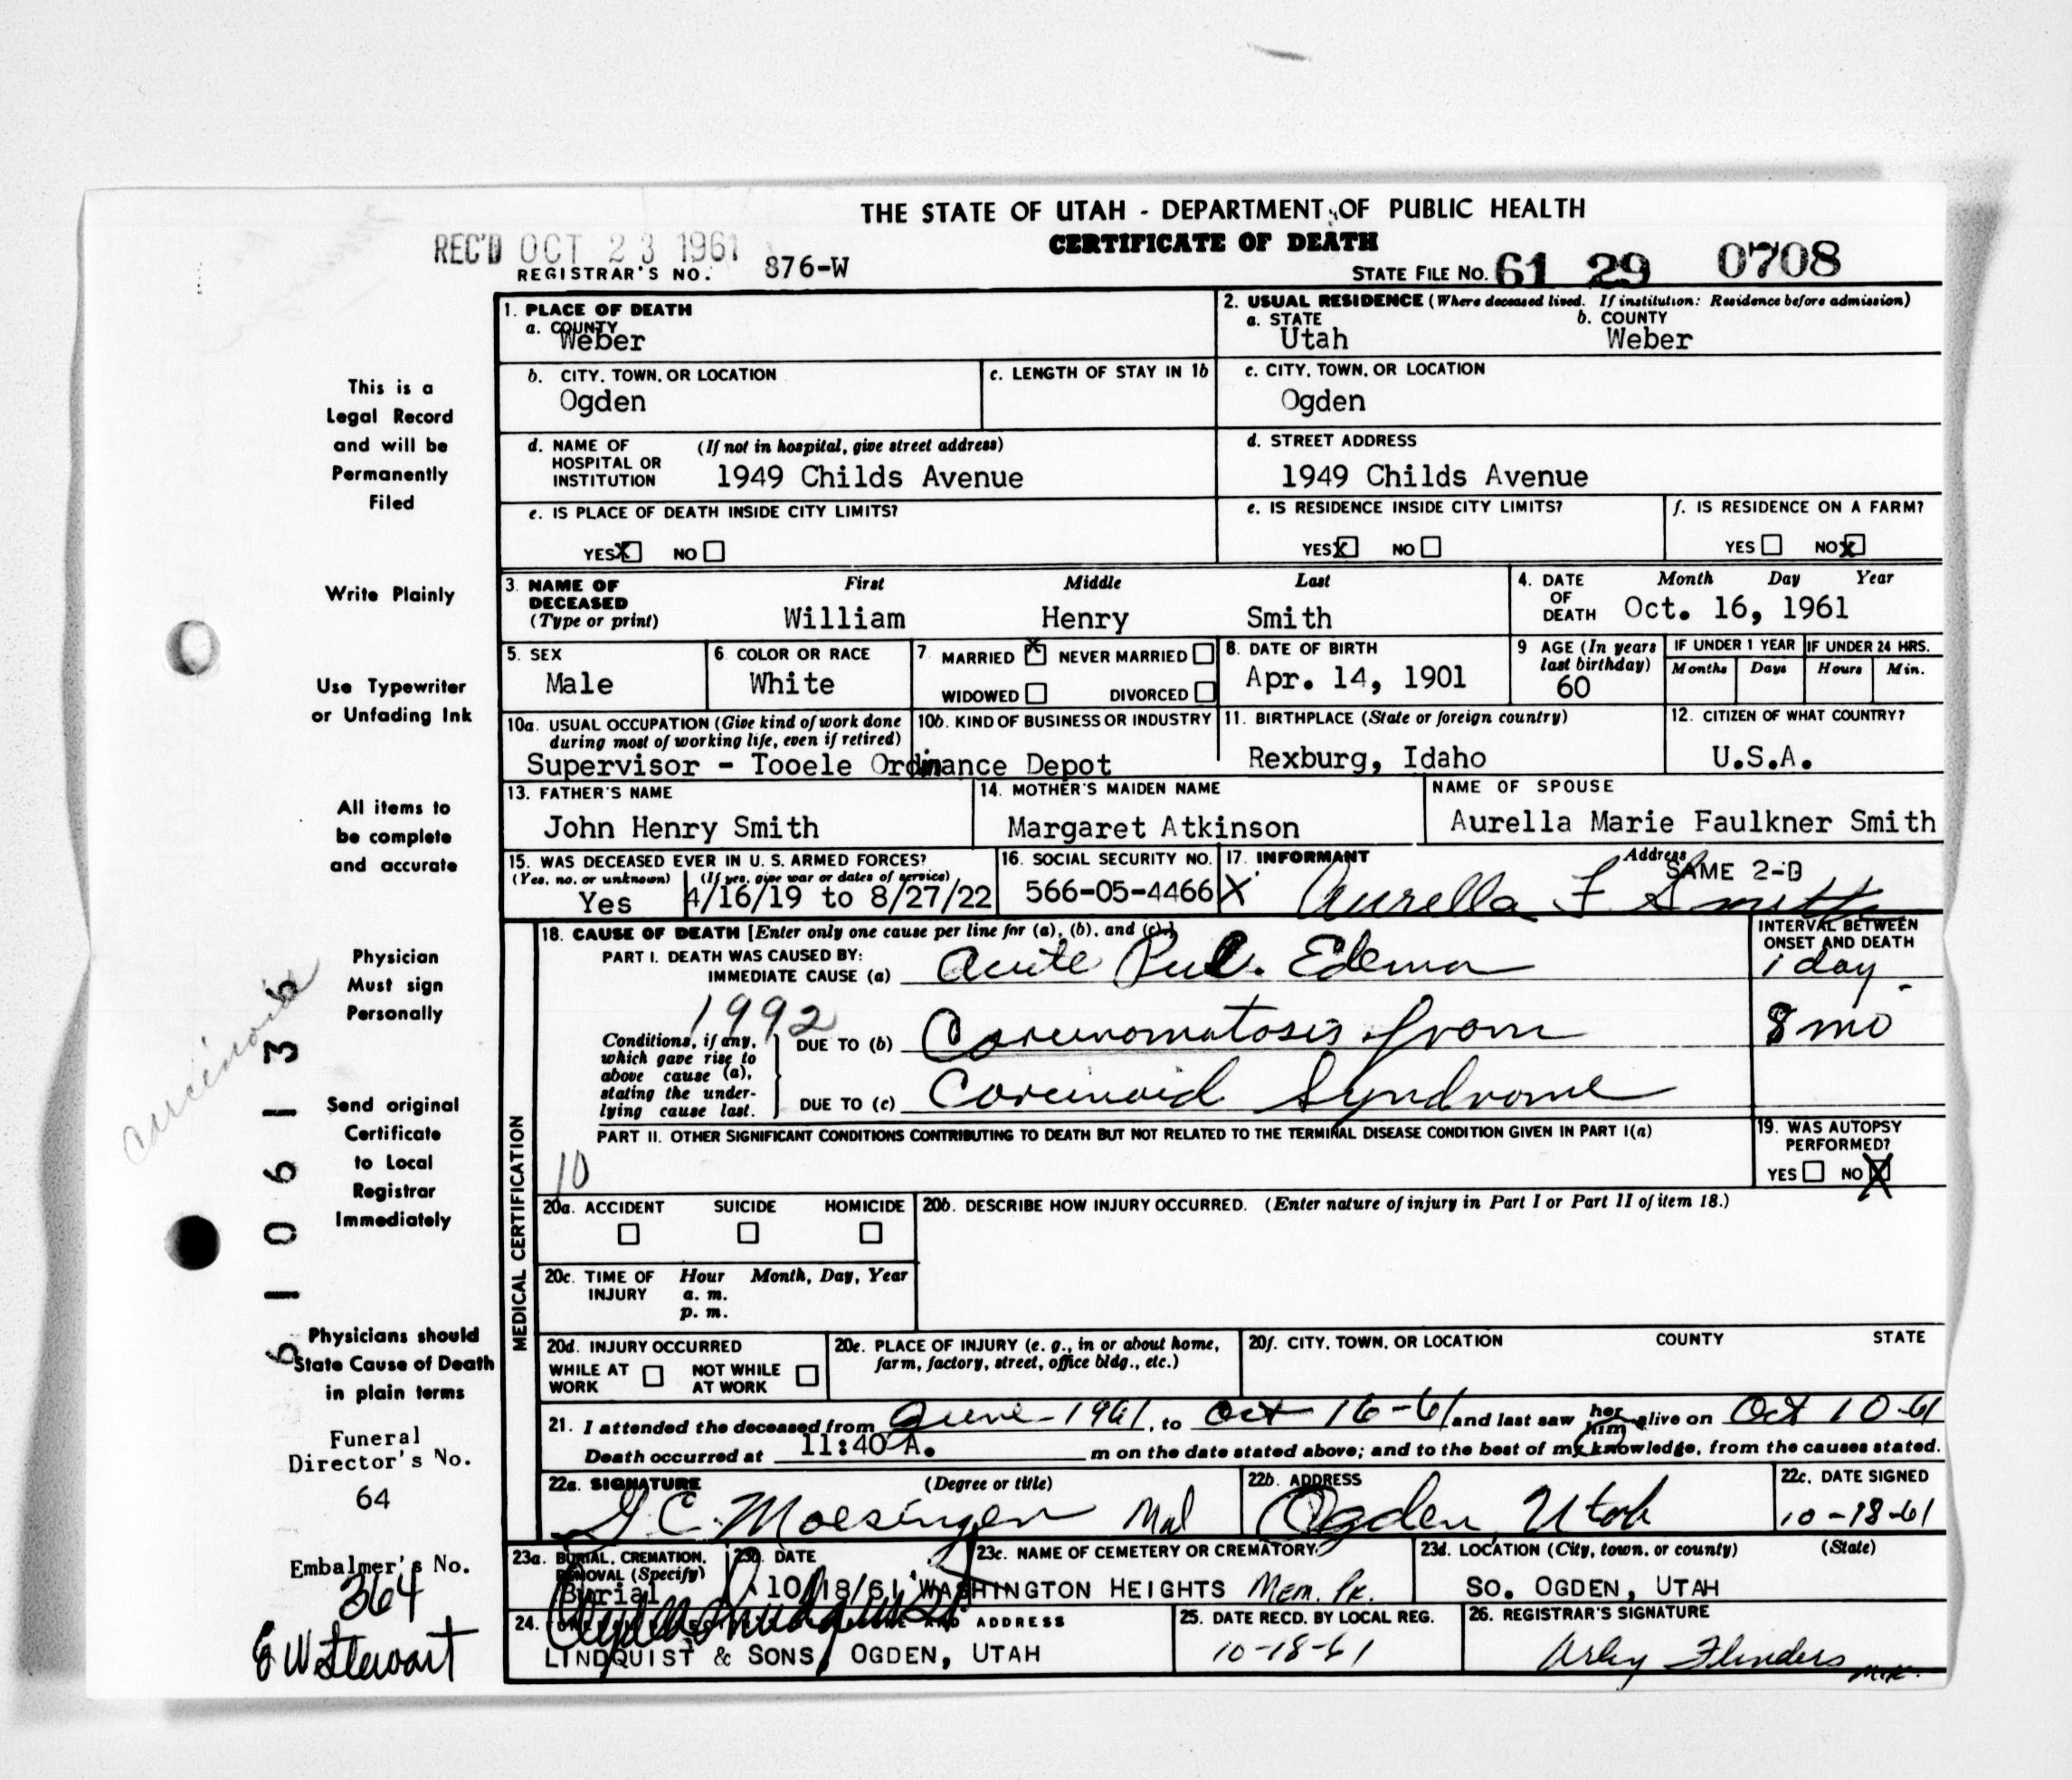 THE STATE OF UTAH - DEPARTMENT OF PUBLIC HEALTH
CERTIFICATE OF DEATH
REC'D OCT 23 1961
REGISTRAR'S NO. 876-W
STATE FILE NO. 61 29 0708
1. PLACE OF DEATH
a. COUNTY
Weber
2. USUAL RESIDENCE (Where deceased lived. If institution: Residence before admission)
a. STATE b. COUNTY
Utah Weber
b. CITY, TOWN, OR LOCATION
Ogden
c. LENGTH OF STAY IN 1b
c. CITY, TOWN, OR LOCATION
Ogden
d. NAME OF HOSPITAL OR INSTITUTION (If not in hospital, give street address)
1949 Childs Avenue
d. STREET ADDRESS
1949 Childs Avenue
e. IS PLACE OF DEATH INSIDE CITY LIMITS?
YES X NO
e. IS RESIDENCE INSIDE CITY LIMITS?
YES X NO
f. IS RESIDENCE ON A FARM?
YES NO X
3. NAME OF DECEASED (Type or print) First Middle Last
William Henry Smith
4. DATE OF DEATH Month Day Year
Oct. 16, 1961
5. SEX
Male
6. COLOR OR RACE
White
7. MARRIED X NEVER MARRIED
WIDOWED DIVORCED
8. DATE OF BIRTH
Apr. 14, 1901
9 AGE (In years last birthday)
60
IF UNDER 1 YEAR IF UNDER 24 HRS.
Months Days Hours Min.
10a. USUAL OCCUPATION (Give kind of work done during most of working life, even if retired)
10b. KIND OF BUSINESS OR INDUSTRY
Supervisor - Tooele Ordinance Depot
11. BIRTHPLACE (State or foreign country)
Rexburg, Idaho
12. CITIZEN OF WHAT COUNTRY?
U.S.A.
13. FATHER'S NAME
John Henry Smith
14. MOTHER'S MAIDEN NAME
Margaret Atkinson
NAME OF SPOUSE
Aurella Marie Faulkner Smith
15. WAS DECEASED EVER IN U. S. ARMED FORCES?
(Yes, no, or unknown) (If yes, give war or dates of service)
Yes 4/16/19 to 8/27/22
16. SOCIAL SECURITY NO.
566-05-4466
17. INFORMANT Address
SAME 2-D
X Aurella F Smith
MEDICAL CERTIFICATION
18. CAUSE OF DEATH [Enter only one cause per line for (a), (b), and (c).]
INTERVAL BETWEEN ONSET AND DEATH
PART I. DEATH WAS CAUSED BY:
IMMEDIATE CAUSE (a) Acute Pul. Edema 1 day
1992
Conditions, if any, which gave rise to above cause (a), stating the underlying cause last.
DUE TO (b) Carcinomatosis from 8 mo
DUE TO (c) Carcinoid Syndrome
PART II. OTHER SIGNIFICANT CONDITIONS CONTRIBUTING TO DEATH BUT NOT RELATED TO THE TERMINAL DISEASE CONDITION GIVEN IN PART I(a)
10
19. WAS AUTOPSY PERFORMED?
YES NO X
20a. ACCIDENT SUICIDE HOMICIDE
20b. DESCRIBE HOW INJURY OCCURRED. (Enter nature of injury in Part I or Part II of item 18.)
20c. TIME OF INJURY Hour Month, Day, Year
a. m.
p. m.
20d. INJURY OCCURRED
WHILE AT WORK NOT WHILE AT WORK
20e. PLACE OF INJURY (e. g., in or about home, farm, factory, street, office bldg., etc.)
20f. CITY, TOWN, OR LOCATION COUNTY STATE
21. I attended the deceased from June 1961, to Oct 16-61 and last saw her him alive on Oct 10-61
Death occurred at 11:40 A. m on the date stated above; and to the best of my knowledge, from the causes stated.
22a. SIGNATURE (Degree or title)
G C. Moesinger Md
22b. ADDRESS
Ogden, Utah
22c. DATE SIGNED
10-18-61
23a. BURIAL, CREMATION, REMOVAL (Specify)
Burial
23b. DATE
10/18/61
23c. NAME OF CEMETERY OR CREMATORY
WASHINGTON HEIGHTS Mem. Pk.
23d. LOCATION (City, town, or county) (State)
SO. OGDEN, UTAH
24. AND ADDRESS
LINDQUIST & SONS, OGDEN, UTAH
25. DATE RECD. BY LOCAL REG.
10-18-61
26. REGISTRAR'S SIGNATURE
Arley Flinders
This is a
Legal Record
and will be
Permanently
Filed
Write Plainly
Use Typewriter
or Unfading Ink
All items to
be complete
and accurate
Physician
Must sign
Personally
Send original
Certificate
to Local
Registrar
Immediately
Physicians should
State Cause of Death
in plain terms
Funeral
Director's No.
64
Embalmer's No.
364
E W Stewart
carcinoid
6 1 0 6 1 3 6